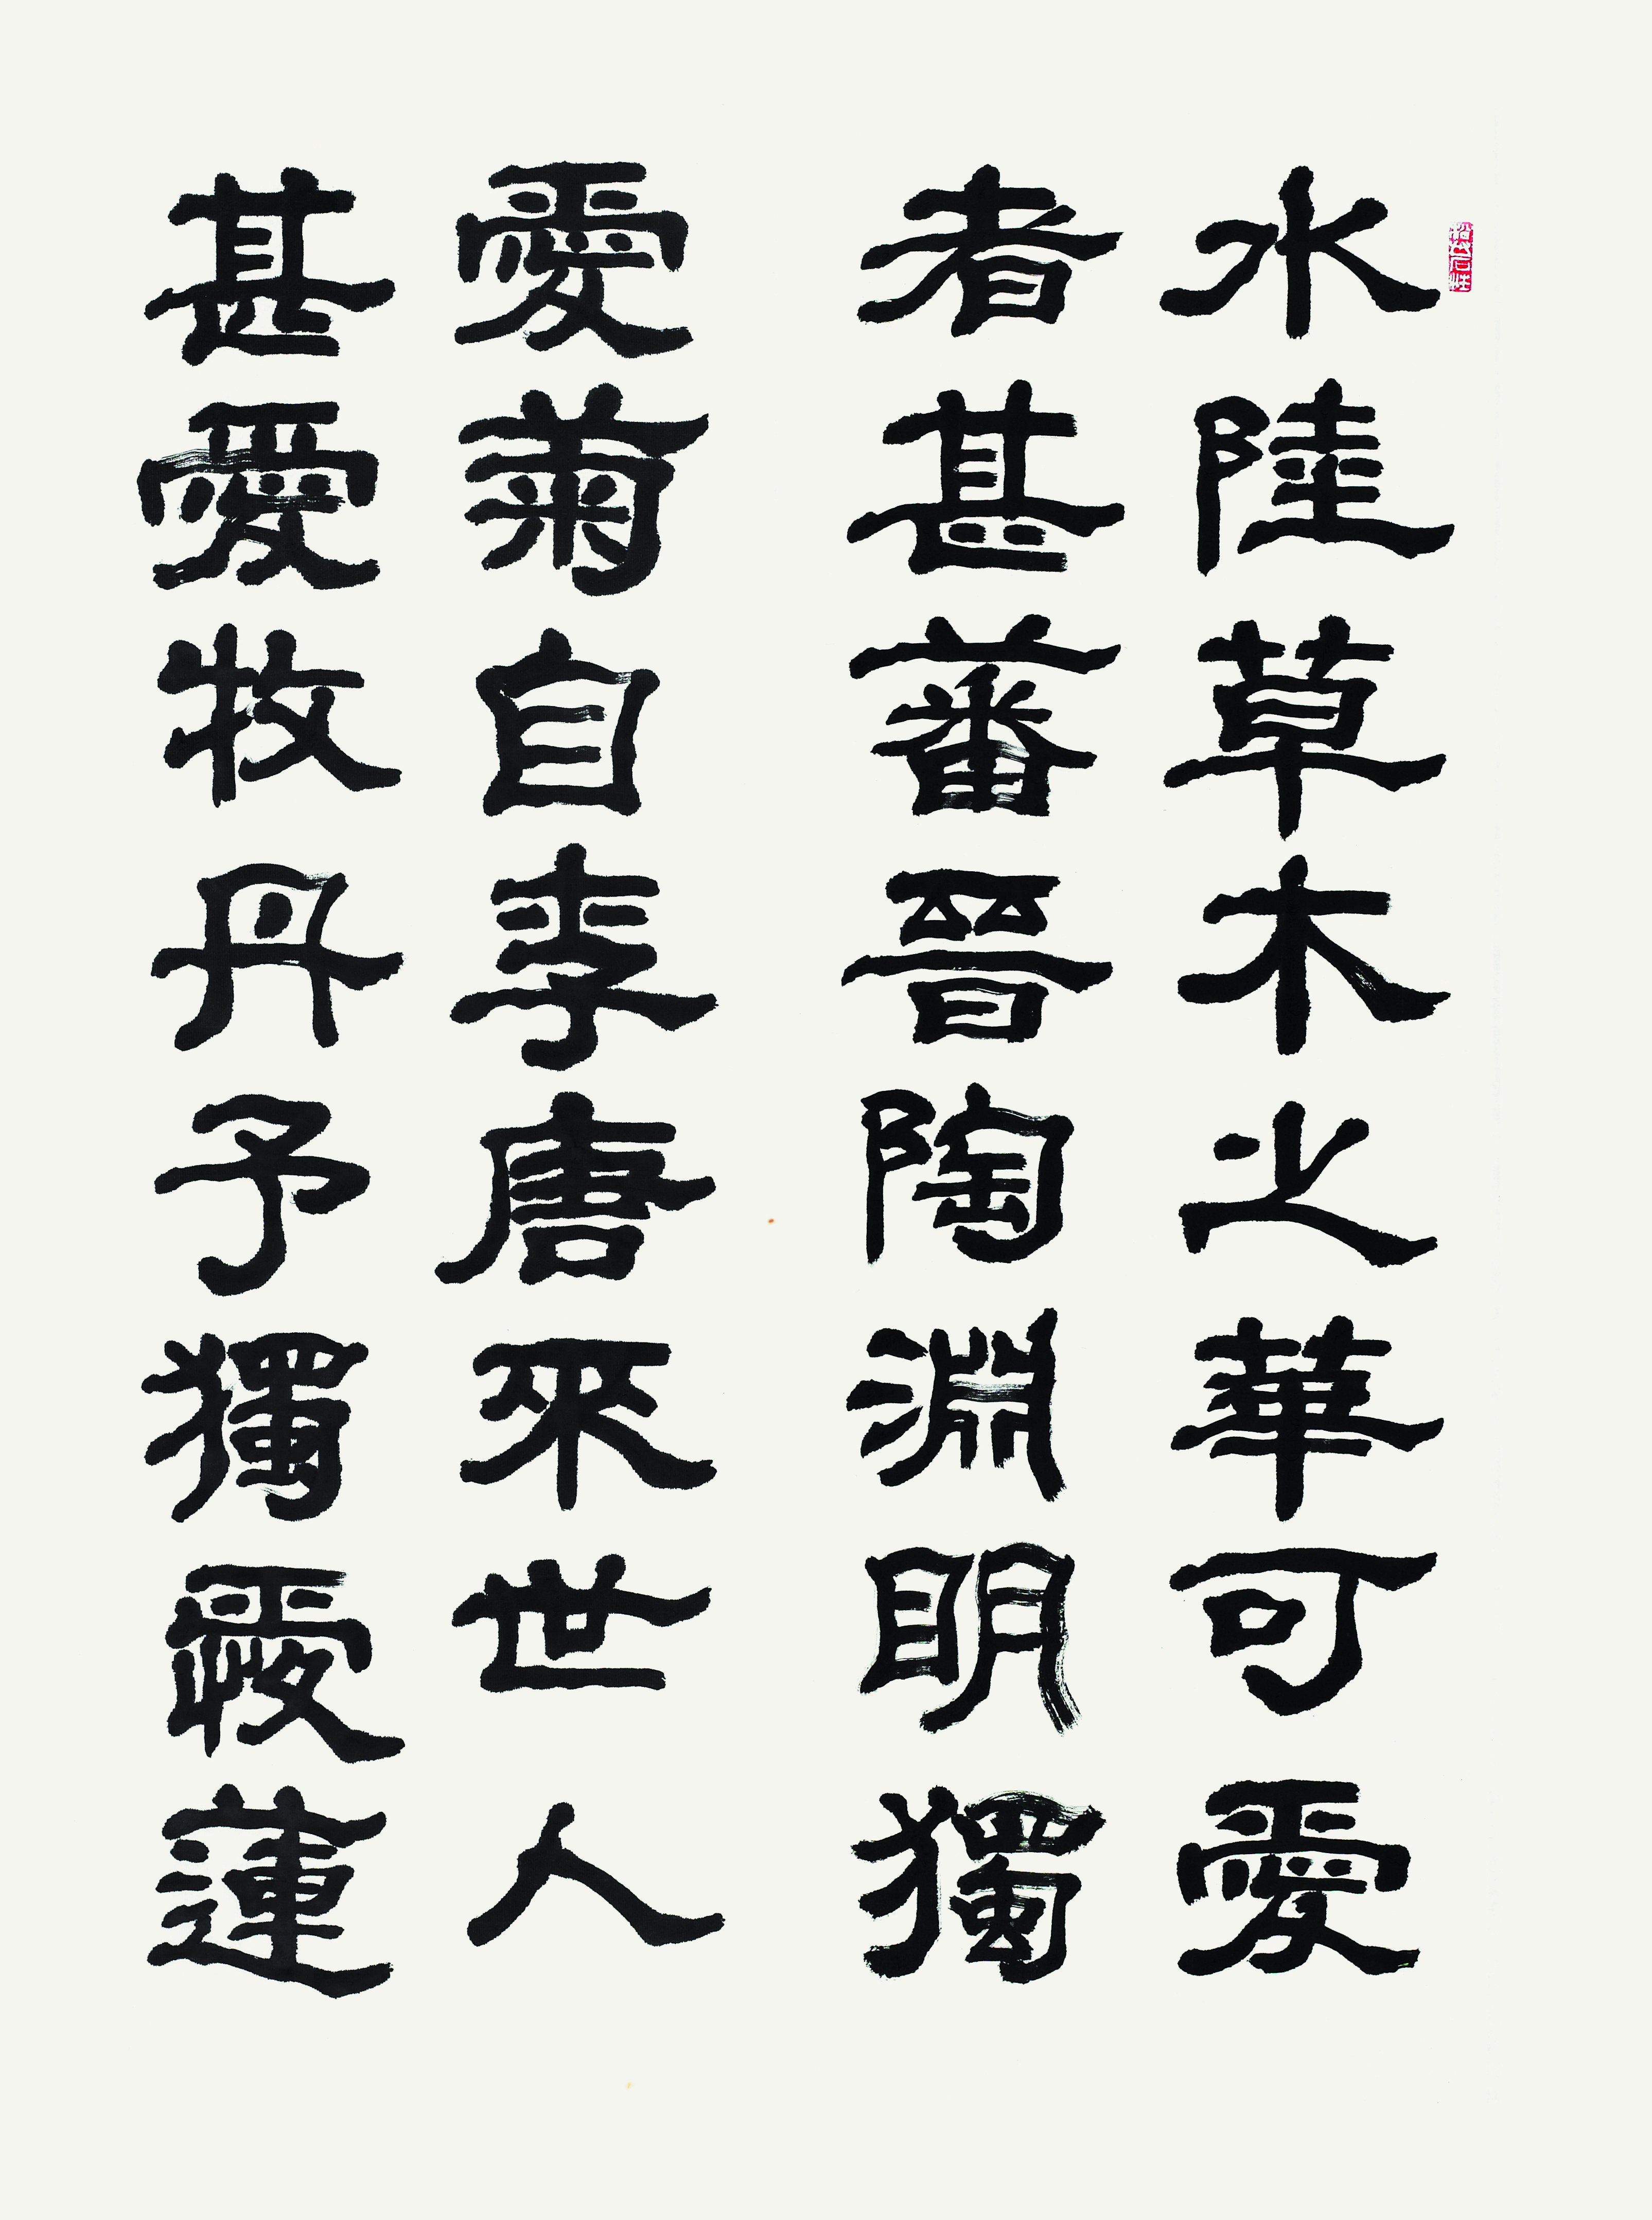 水陸草木之華可愛
者甚蕃晉陶淵明獨
愛菊自李唐來世人
甚愛牧丹予獨愛蓮